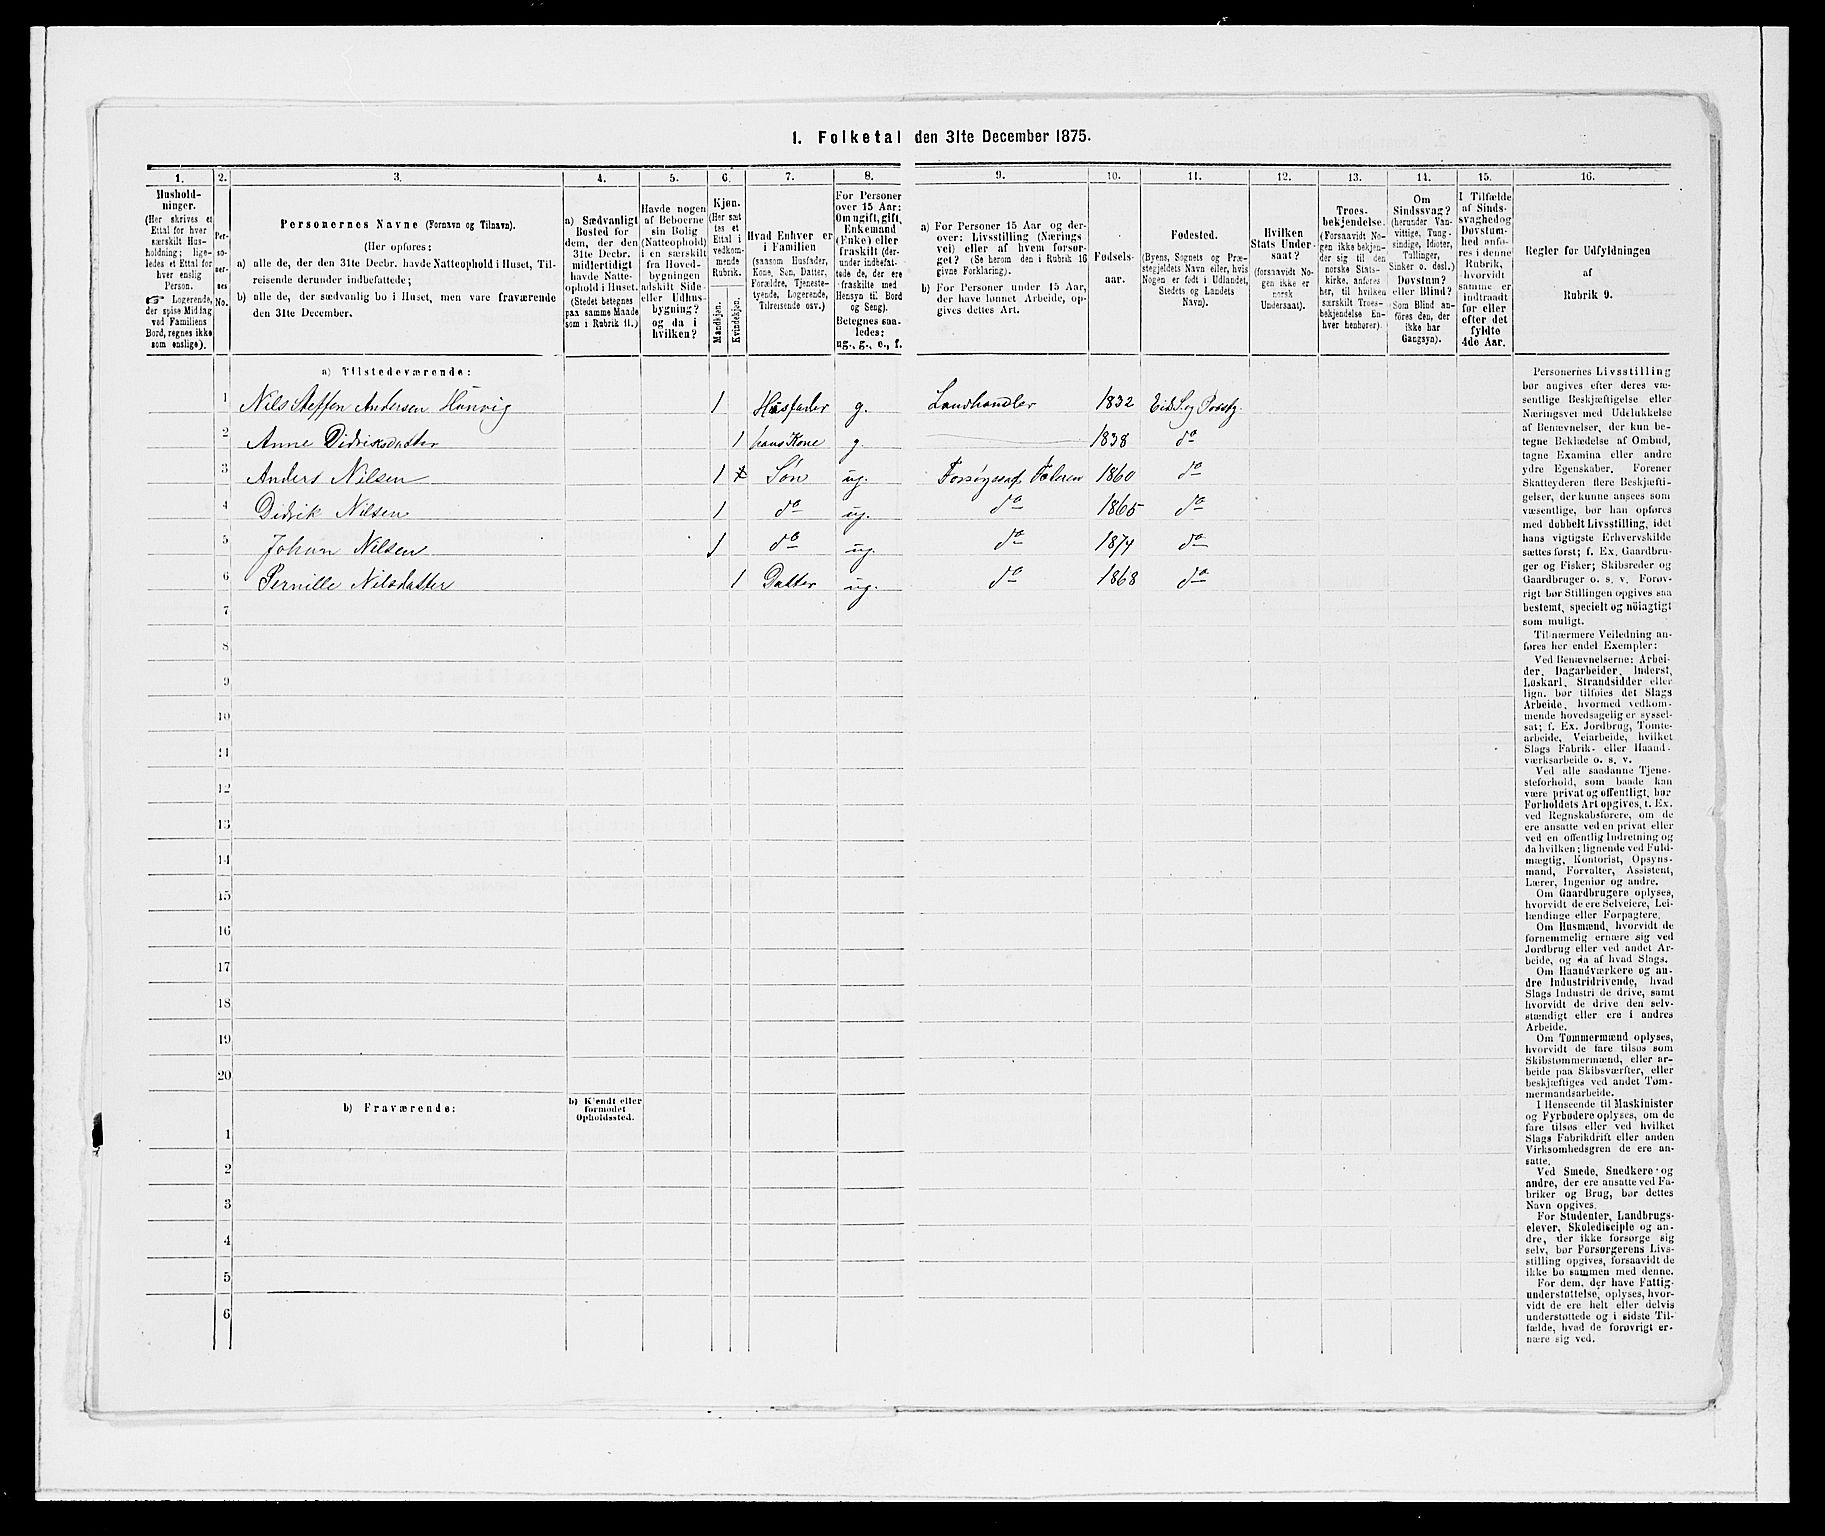 1. Folketal den 31te December 1875.
1. 2. 3. 4. 5. 6. 7. 8. 9. 10. 11. 12. 13. 14. 15. 16.
Hushold-
ninger.
(Her skrives et
Ettal for hver
særskilt Hus-
holdning; lige-
ledes et Ettal for
hver enslig
Person.
☞ Logerende,
der spise Middag
ved Familiens
Bord, regnes ikke
som enslige).
Per-
so-
ner-
nes
No.
Personernes Navne (Fornavn og Tilnavn).
(Her opføres:
a) alle de, der den 31te Decbr. havde Natteophold i Huset, Til-
reisende derunder indbefattede;
b) alle de, der sædvanlig bo i Huset, men vare fraværende
den 31te December.
a) Sædvanligt
Bosted for
dem, der den
31te Decbr.
midlertidigt
havde Natte-
ophold i Huset.
(Stedet betegnes
paa samme Maade
som i Rubrik 11.)
Havde nogen
af Beboerne
sin Bolig
(Natteophold)
i en særskilt
fra Hoved-
bygningen
adskilt Side-
eller Udhus-
bygning?
og da i
hvilken?
Kjøn.
(Her sæt-
tes et
Ettal i
vedkom-
mende
Rubrik.
Mandkjøn.
Kvindekjøn.
Hvad Enhver er
i Familien
(saasom Husfader,
Kone, Søn, Datter,
Forældre, Tjeneste-
tyende, Logerende,
Tilreisende osv.)
For Personer
over 15 Aar:
Om ugift, gift,
Enkemand
(Enke) eller
fraskilt (der-
under indbefat-
tede de, der ere
fraskilte med
Hensyn til Bord
og Seng).
Betegnes saa-
ledes:
ug., g., e., f.
a) For Personer 15 Aar og der-
over: Livsstilling (Nærings-
vei) eller af hvem forsør-
get? (Se herom den i Rubrik 16
givne Forklaring).
b) For Personer under 15 Aar,
der have lønnet Arbeide, op-
gives dettes Art.
Fødsels-
aar.
Fødested.
(Byens, Sognets og Præ-
stegjeldets Navn eller, hvis
Nogen er født i Udlandet,
Stedets og Landets
Navn).
Hvilken
Stats Under-
saat?
(forsaavidt No-
gen ikke er
norsk
Undersaat).
Troes-
bekjendelse.
(Forsaavidt No-
gen ikke bekjen-
der sig til den
norske Stats-
kirke, anføres
her, til hvilken
særskilt Troes-
bekjendelse En-
hver henhører).
Om
Sindssvag?
(herunder Van-
vittige, Tung-
sindige, Idioter,
Tullinger,
Sinker o. desl.)
Døvstum?
eller Blind?
Som Blind an-
føres den, der
ikke har
Gangsyn).
I Tilfælde
af Sinds-
svaghed og
Døvstum-
hed anfø-
res i denne
Rubrik,
hvorvidt
samme er
indtraadt
før eller
efter det
fyldte
4de Aar.
Regler for Udfyldningen
af
Rubrik 9.
a) Tilstedeværende:
1 Nils Steffen Andersen Hunvig 1 Husfader g. Landhandler 1832 Eid S. og Præstg.
2 Anne Didriksdatter 1 hans Kone g. 1838 do
3 Anders Nilsen 1 Søn ug. Forsørges af Faderen 1860 do
4 Didrik Nilsen 1 do ug. do 1865 do
5 Johan Nilsen 1 do ug. do 1874 do
6 Pernille Nilsdatter 1 Datter ug. do 1868 do
7
8
9
10
11
12
13
14
15
16
17
18
19
20
b) Fraværende:
b) Kjendt eller
formodet
Opholdssted.
1
2
3
4
5
6
Personernes Livsstilling
bør angives efter deres væ-
sentlige Beskjæftigelse eller
Næringsvei med Udelukkelse
af Benævnelser, der kun be-
tegne Beklædelse af Ombud,
tagne Examina eller andre
ydre Egenskaber. Forener
Skatteyderen flere Beskjæfti-
gelser, der kunne ansees som
væsentlige, bør han opføres
med dobbelt Livsstilling, idet
hans vigtigste Erhvervskilde
sættes først; f. Ex. Gaardbru-
ger og Fisker; Skibsreder og
Gaardbruger o. s. v. Forøv-
rigt bør Stillingen opgives saa
bestemt, specielt og nøiagtigt
som muligt.
Til nærmere Veiledning an-
føres her endel Exempler:
Ved Benævnelserne: Arbei-
der, Dagarbeider, Inderst,
Løskarl, Strandsidder eller
lign. bør tilføies det Slags
Arbeide, hvormed vedkom-
mende hovedsagelig er syssel-
sat; f. Ex. Jordbrug, Tomte-
arbeide, Veiarbeide, hvilket
Slags Fabrik- eller Haand-
værksarbeide o. s. v.
Ved alle saadanne Tjene-
steforhold, som baade kan
være privat og offentligt, bør
Forholdets Art opgives, t. Ex.
ved Regnskabsførere, om de
ere ansatte ved en privat eller
ved en offentlig Indretning og
da hvilken; lignende ved Fuld-
mægtig, Kontorist, Opsyns-
mand, Forvalter, Assistent,
Lærer, Ingeniør og andre.
Om Gaardbrugere oplyses,
hvorvidt de ere Selveiere, Lei-
lændinge eller Forpagtere.
Om Husmænd, hvorvidt de
fornemmelig ernære sig ved
Jordbrug eller ved andet Ar-
beide, og da af hvad Slags.
Om Haandværkere og an-
dre Industridrivende, hvad
Slags Industri de drive, samt
hvorvidt de drive den selv-
stændigt eller ere i andres
Arbeide.
Om Tømmermænd oplyses,
hvorvidt de fare tilsøs som
Skibstømmermænd, eller ar-
beide paa Skibsværfter, eller
beskjæftiges ved andet Tøm-
mermandsarbeide.
I Henseende til Maskinister
og Fyrbødere oplyses, om de
fare tilsøs eller ved hvilket
Slags Fabrikdrift eller anden
Virksomhedsgren de ere an-
satte.
Ved Smede, Snedkere og
andre, der ere ansatte ved Fa-
briker og Brug, bør dettes
Navn opgives.
For Studenter, Landbrugs-
elever, Skoledisciple og an-
dre, der ikke forsørge sig
selv, bør Forsørgerens Livs-
stilling opgives, forsaavidt de
ikke bo sammen med denne.
For dem, der have Fattig-
understøttelse, oplyses, hvor-
vidt de ere helt eller delvis
understøttede og i sidste Til-
fælde, hvad de forøvrigt er-
nære sig ved.